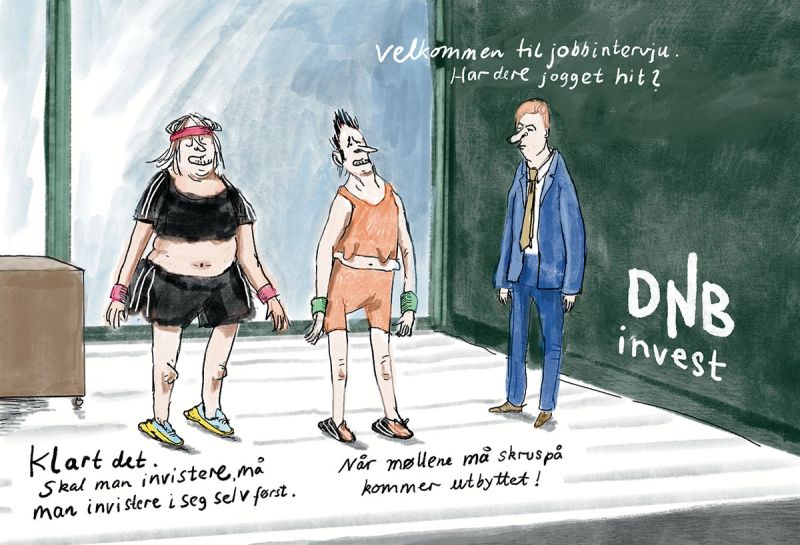 Velkommen til jobbintervju.
Har dere jogget hit?
DNB
invest
Klart det.
Skal man invistere, må
man invistere i seg selv først.
Når møllene må skrus på
kommer utbyttet!